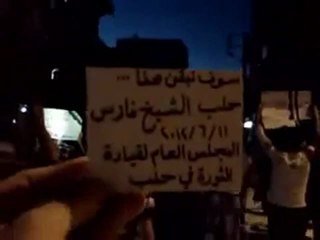 سوف نبقى معا...
حلب الشيخ فارس
٢٠١٢/٦/١١
المجلس العام لقيادة
الثورة في حلب